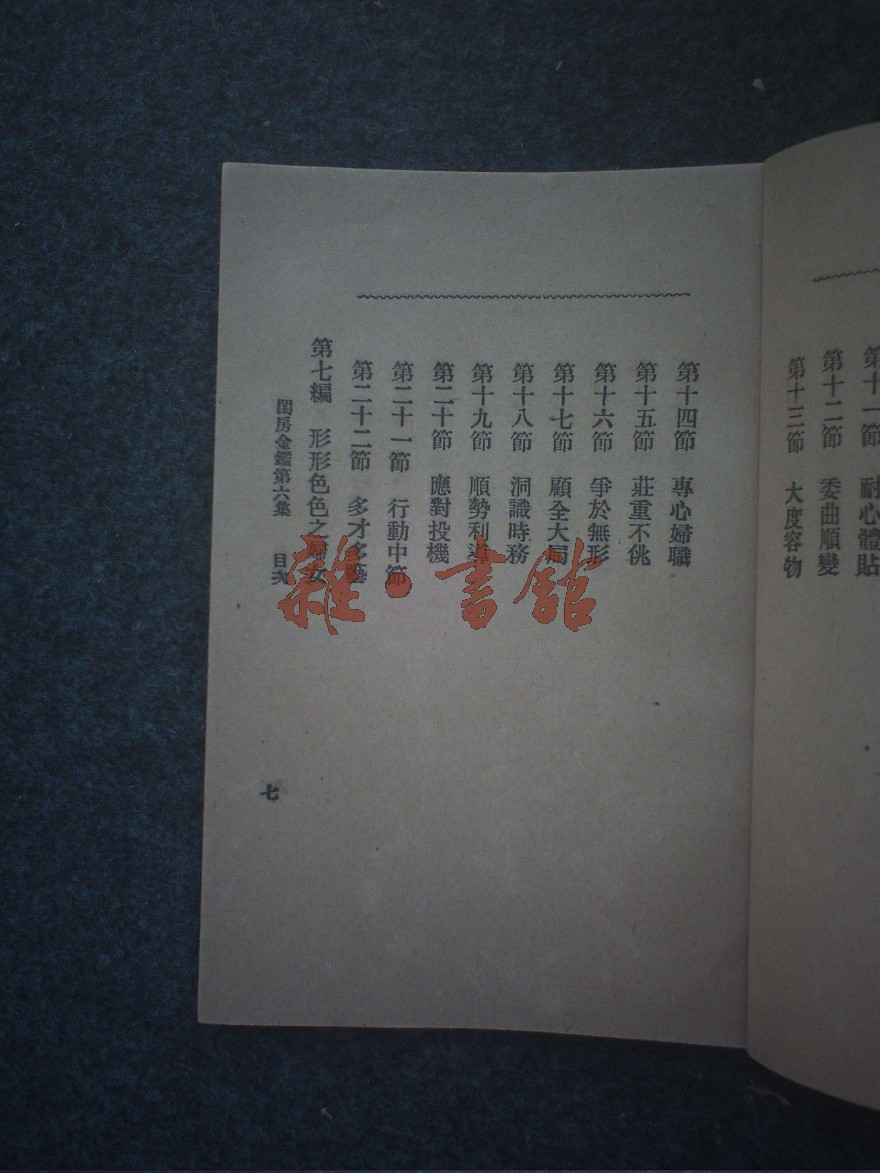 第十一節　耐心體貼
第十二節　委曲順變
第十三節　大度容物
第十四節　專心婦職
第十五節　莊重不佻
第十六節　爭於無形
第十七節　顧全大局
第十八節　洞識時務
第十九節　順勢利導
第二十節　應對投機
第二十一節　行動中節
第二十二節　多才多藝
第七編　形形色色之婦女
閨房金鑑第六集　目次
七
雜·書館